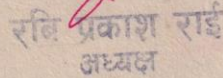 रबि प्रकाश राई
अध्यक्ष